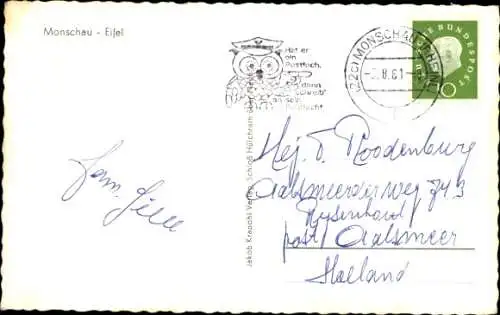 Monschau - Eifel
Hat er
ein
Postfach,
dann
schreib'
an sein
Postfach!
(22c) MONSCHAU
8.61
DEUTSCHE BUNDESPOST
10
Fam.
Jakob Krapohl Verlag, Schloß Hülchrath
Roodenburg
Aalsmeerderweg 743
Rijsenhout
post Aalsmeer
Holland